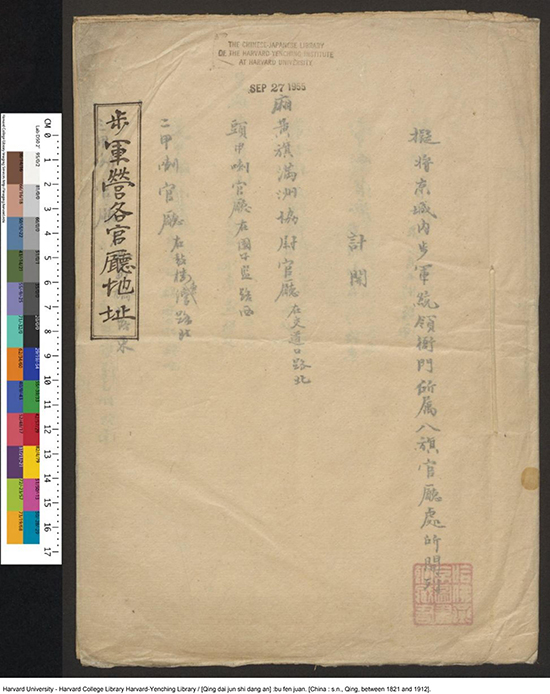 THE CHINESE-JAPANESE LIBRARY
OF THE HARVARD-YENCHING INSTITUTE
AT HARVARD UNIVERSITY
SEP 27 1955
擬將京城內步軍統領衙門所屬八旗官廳處所開列
計開
廂黃旗滿洲協尉官廳 在交道口路北
頭甲喇官廳 在國子監路西
二甲喇官廳 在鼓樓灣路北
步軍營各官廳地址
Harvard University - Harvard College Library Harvard-Yenching Library / [Qing dai jun shi dang an] :bu fen juan. [China : s.n., Qing, between 1821 and 1912].